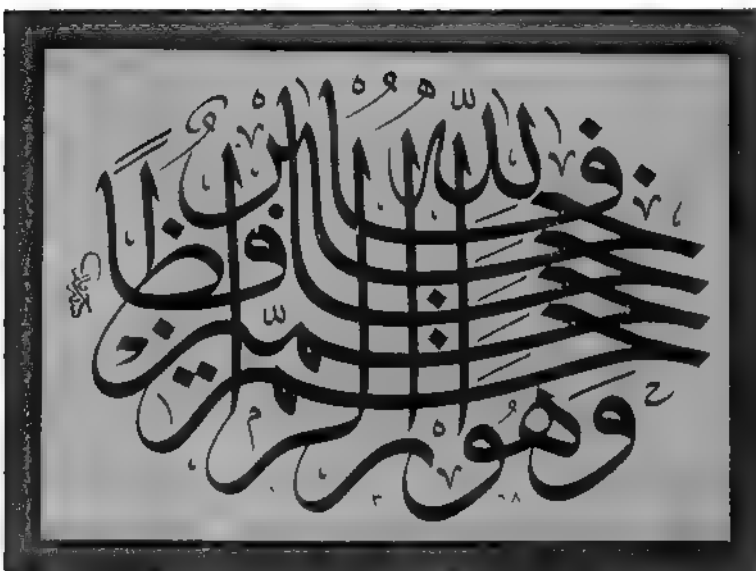 فالله خير حافظا
وهو أرحم الراحمين